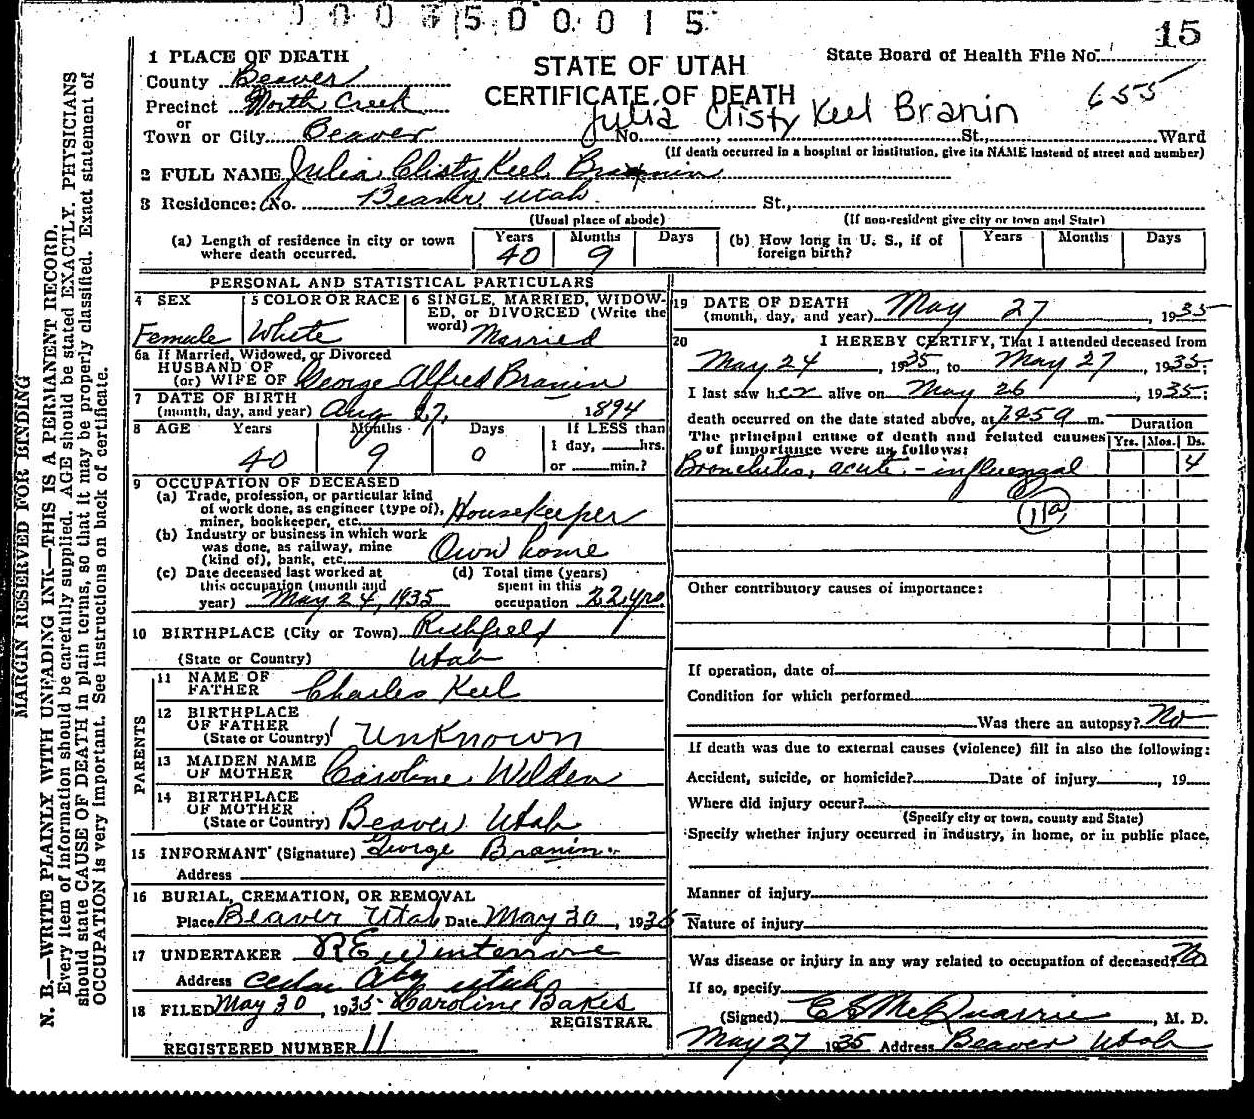 0 0 3 5 0 0 0 1 5
15
1 PLACE OF DEATH
County Beaver
Precinct North Creek
or
Town or City Beaver
STATE OF UTAH
CERTIFICATE OF DEATH
State Board of Health File No.
655
Julia Clisty Keel Branin
No. St., Ward
(If death occurred in a hospital or institution, give its NAME instead of street and number)
2 FULL NAME Julia Clisty Keel Branin
3 Residence: No. Beaver, Utah St.,
(Usual place of abode) (If non-resident give city or town and State)
(a) Length of residence in city or town where death occurred. Years 40 Months 9 Days
(b) How long in U. S., if of foreign birth? Years Months Days
PERSONAL AND STATISTICAL PARTICULARS
4 SEX Female
5 COLOR OR RACE White
6 SINGLE, MARRIED, WIDOWED, or DIVORCED (Write the word) Married
6a If Married, Widowed, or Divorced
HUSBAND OF
(or) WIFE OF George Alfred Branin
7 DATE OF BIRTH
(month, day, and year) Aug 27, 1894
8 AGE Years 40 Months 9 Days 0
If LESS than
1 day, hrs.
or min.?
9 OCCUPATION OF DECEASED
(a) Trade, profession, or particular kind
of work done, as engineer (type of),
miner, bookkeeper, etc. Housekeeper
(b) Industry or business in which work
was done, as railway, mine
(kind of), bank, etc. Own home
(c) Date deceased last worked at
this occupation (month and
year) May 24, 1935
(d) Total time (years)
spent in this
occupation 22 yrs.
10 BIRTHPLACE (City or Town) Richfield
(State or Country) Utah
PARENTS
11 NAME OF
FATHER Charles Keel
12 BIRTHPLACE
OF FATHER
(State or Country) Unknown
13 MAIDEN NAME
OF MOTHER Caroline Wilden
14 BIRTHPLACE
OF MOTHER
(State or Country) Beaver Utah
15 INFORMANT (Signature) George Branin
Address
16 BURIAL, CREMATION, OR REMOVAL
Place Beaver Utah Date May 30, 1935
17 UNDERTAKER
Address Cedar City Utah
18 FILED May 30, 1935 Caroline Bakes
REGISTRAR.
REGISTERED NUMBER 11
19 DATE OF DEATH
(month, day, and year) May 27, 1935
20 I HEREBY CERTIFY, That I attended deceased from
May 24, 1935, to May 27, 1935;
I last saw her alive on May 26, 1935;
death occurred on the date stated above, at m.
The principal cause of death and related causes
of importance were as follows:
Duration
Yrs. Mos. Ds.
Bronchitis, acute - influenzal 4
11a
Other contributory causes of importance:
If operation, date of
Condition for which performed
Was there an autopsy? No
If death was due to external causes (violence) fill in also the following:
Accident, suicide, or homicide? Date of injury , 19
Where did injury occur?
(Specify city or town, county and State)
Specify whether injury occurred in industry, in home, or in public place.
Manner of injury
Nature of injury
Was disease or injury in any way related to occupation of deceased? No
If so, specify
(Signed) McQuarrie, M. D.
May 27 1935 Address Beaver Utah
MARGIN RESERVED FOR BINDING
N. B.—WRITE PLAINLY WITH UNFADING INK—THIS IS A PERMANENT RECORD.
Every item of information should be carefully supplied. AGE should be stated EXACTLY. PHYSICIANS
should state CAUSE OF DEATH in plain terms, so that it may be properly classified. Exact statement of
OCCUPATION is very important. See instructions on back of certificate.